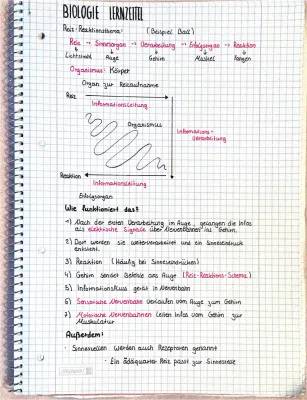 BIOLOGIE LERNZETTEL
Reiz-Reaktionsschema: (Beispiel Ball)
Reiz → Sinnesorgan → Verarbeitung → Erfolgsorgan → Reaktion
Lichtstrahl Auge Gehirn Muskel Fangen
Organismus: Körper
Organ zur Reizaufnahme
Reiz
Informationsleitung
Organismus
Informations-
verarbeitung
Reaktion
Informationsleitung
Erfolgsorgan
Wie funktioniert das?
1) Nach der ersten Verarbeitung im Auge, gelangen die Infos
als elektrische Signale über Nervenbahnen ins Gehirn.
2) Dort werden sie weiterverarbeitet und ein Sinneseindruck
entsteht.
3) Reaktion (Häufig bei Sinneseindrücken)
4) Gehirn sendet Befehle ans Auge (Reiz-Reaktions-Schema)
5) Informationsfluss geht in Nervenbahn
6) Sensorische Nervenbahn verlaufen vom Auge zum Gehirn
7) Motorische Nervenbahnen leiten Infos vom Gehirn zur
Muskulatur
Außerdem:
· Sinneszellen werden auch Rezeptoren genannt
· Ein adäquater Reiz passt zur Sinneszelle